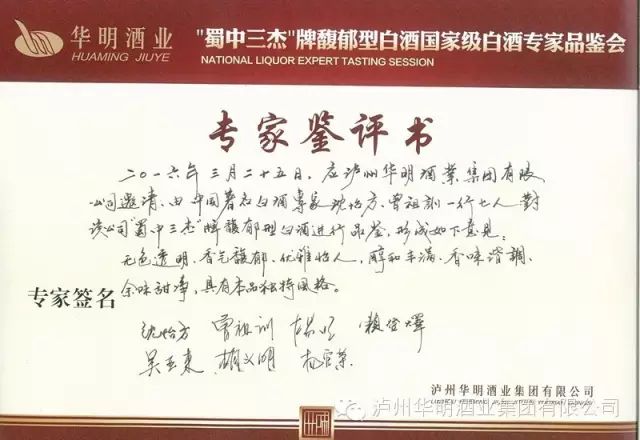 华明酒业
HUAMING JIUYE
"蜀中三杰"牌馥郁型白酒国家级白酒专家品鉴会
NATIONAL LIQUOR EXPERT TASTING SESSION
专家鉴评书
二〇一六年三月二十五日，应泸州华明酒业集团有限
公司邀请，由中国著名白酒专家沈怡方、曾祖训一行七人对
该公司"蜀中三杰"牌馥郁型白酒进行品鉴，形成如下意见：
无色透明、香气馥郁、优雅怡人，醇和丰满、香味谐調、
余味甜净，具有本品独特风格。
专家签名
沈怡方 曾祖训 赖登燡
吴玉东 胡义明 杨官荣
泸州华明酒业集团有限公司
泸州华明酒业集团有限公司